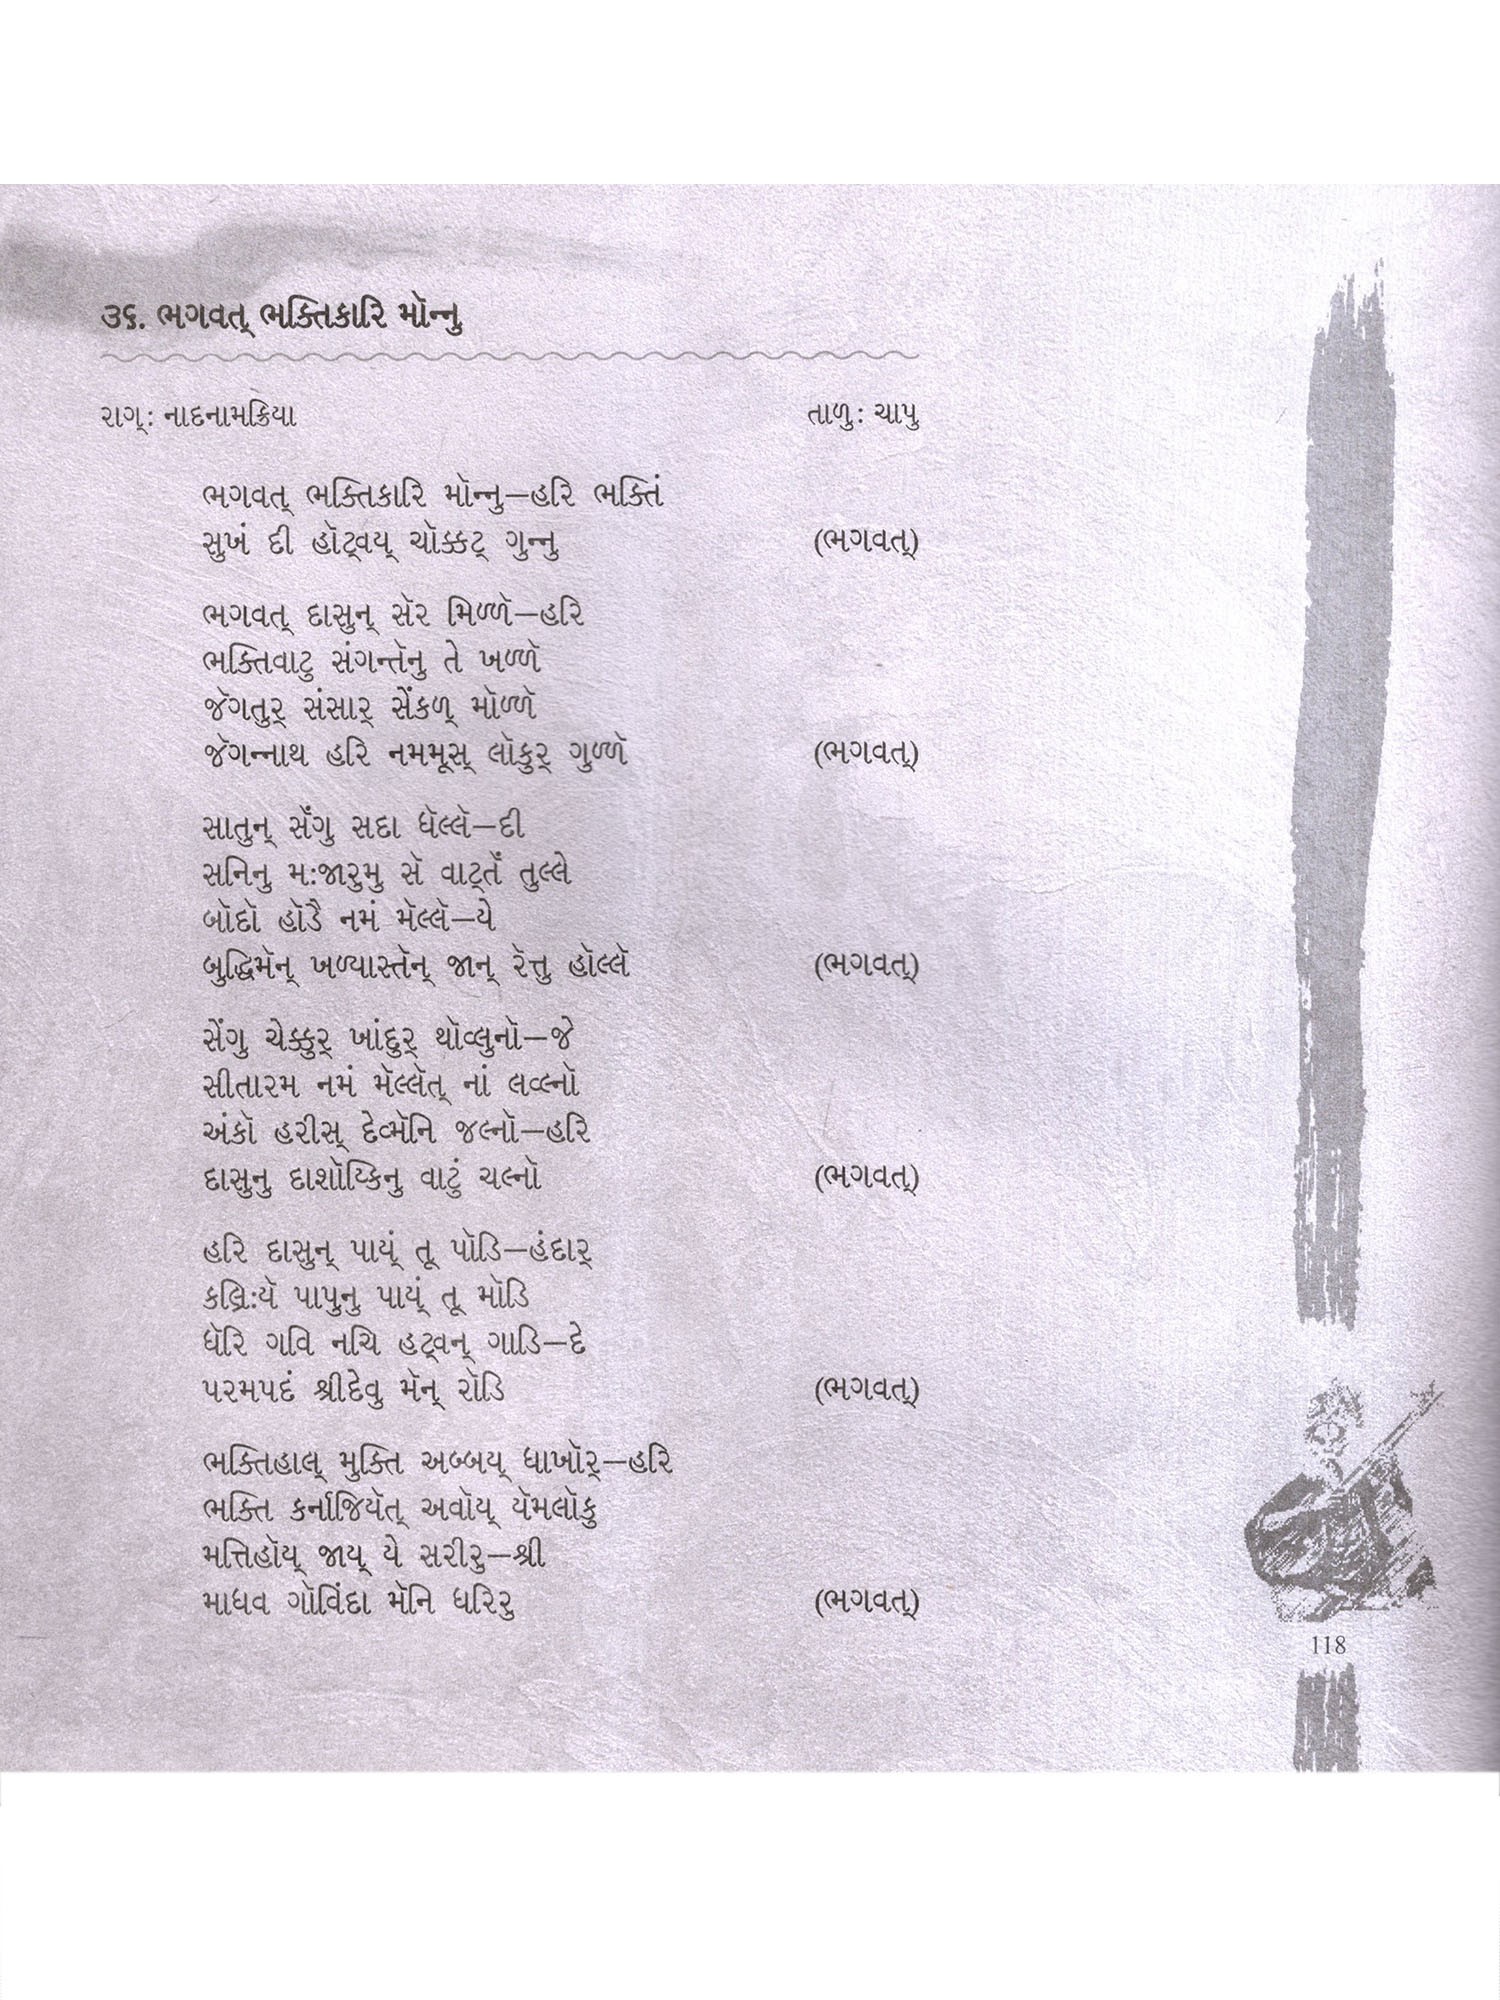 ૩૬. ભગવત્ ભક્તિકારિ મૉન્નુ
રાગ્: નાદનામક્રિયા તાળુ: ચાપુ
ભગવત્ ભક્તિકારિ મૉન્નુ—હરિ ભક્તિં
સુખં દી હૉટ્વય્ ચૉક્કટ્ ગુન્નુ (ભગવત્)
ભગવત્ દાસુન્ સૅર મિળ્ળૅ—હરિ
ભક્તિવાટુ સંગન્તૅનુ તે ખળ્ળૅ
જૅગતુર્ સંસાર્ સેંકળ્ મૉળ્ળૅ
જૅગન્નાથ હરિ નમમૂસ્ લૉકુર્ ગુળ્ળૅ (ભગવત્)
સાતુન્ સૅંગુ સદા ધૅલ્લૅ—દી
સનિનુ મ:જારુમુ સૅ વાટ્તૅં તુલ્લે
બૉદૉ હૉડૈ નમં મૅલ્લૅ—યે
બુદ્ધિમૅન્ ખળ્યાસ્તૅન્ જાન્ રૅત્તુ હૉલ્લૅ (ભગવત્)
સેંગુ ચેક્કુર્ ખાંદુર્ થૉવ્લુનૉ—જે
સીતારમ નમં મૅલ્લૅત્ નાં લવ્લ્નૉ
અંકૉ હરીસ્ દેવ્મૅનિ જલ્નૉ—હરિ
દાસુનુ દાશૉય્કિનુ વાટું ચલ્નૉ (ભગવત્)
હરિ દાસુન્ પાય્ં તૂ પૉડિ—હંદાર્
કલ્રિ:યૅ પાપુનુ પાય્ં તૂ મૉડિ
ધૅરિ ગવિ નચિ હટ્વન્ ગાડિ—દે
પરમપદં શ્રીદેવુ મૅન્ રૉડિ (ભગવત્)
ભક્તિહાલ્ મુક્તિ અબ્બય્ ધાખૉર્—હરિ
ભક્તિ કર્નાજિયૅત્ અવૉય્ યૅમલૉકુ
મત્તિહૉય્ જાય્ યે સરીરુ—શ્રી
માધવ ગૉવિંદા મૅનિ ધરિરુ (ભગવત્)
118